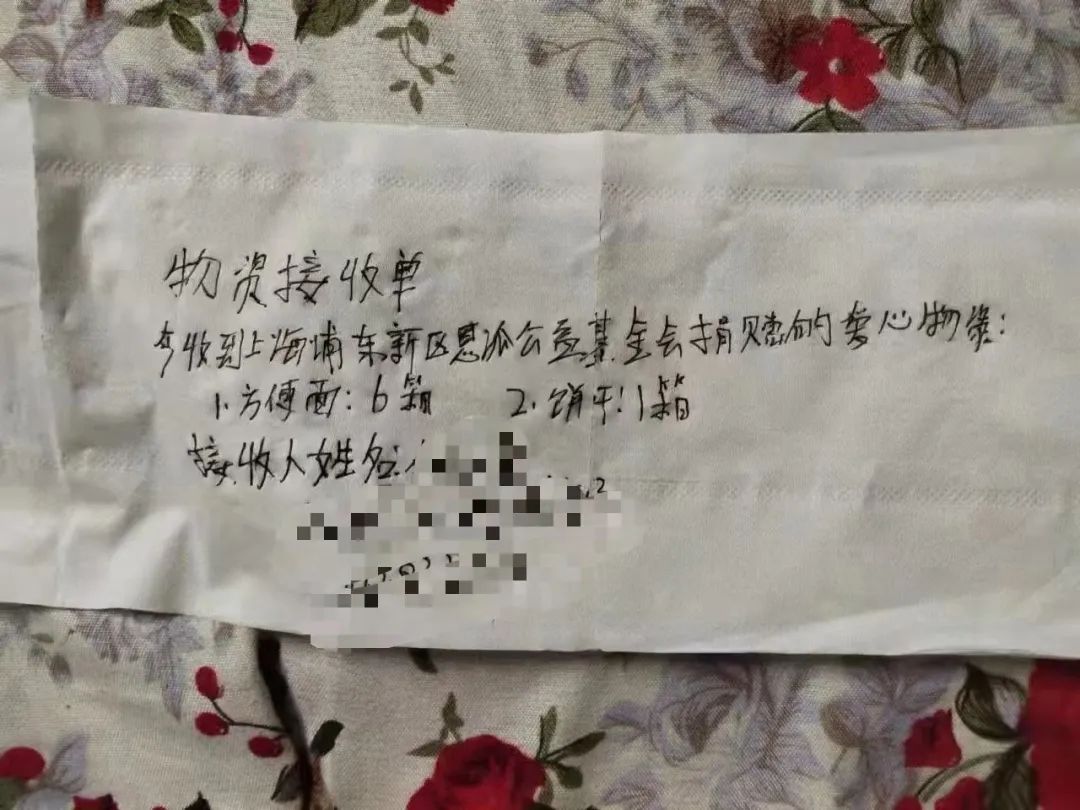 物资接收单
今收到上海浦东新区恩派公益基金会捐赠的爱心物资:
1.方便面:6箱 2.饼干:1箱
接收人姓名: